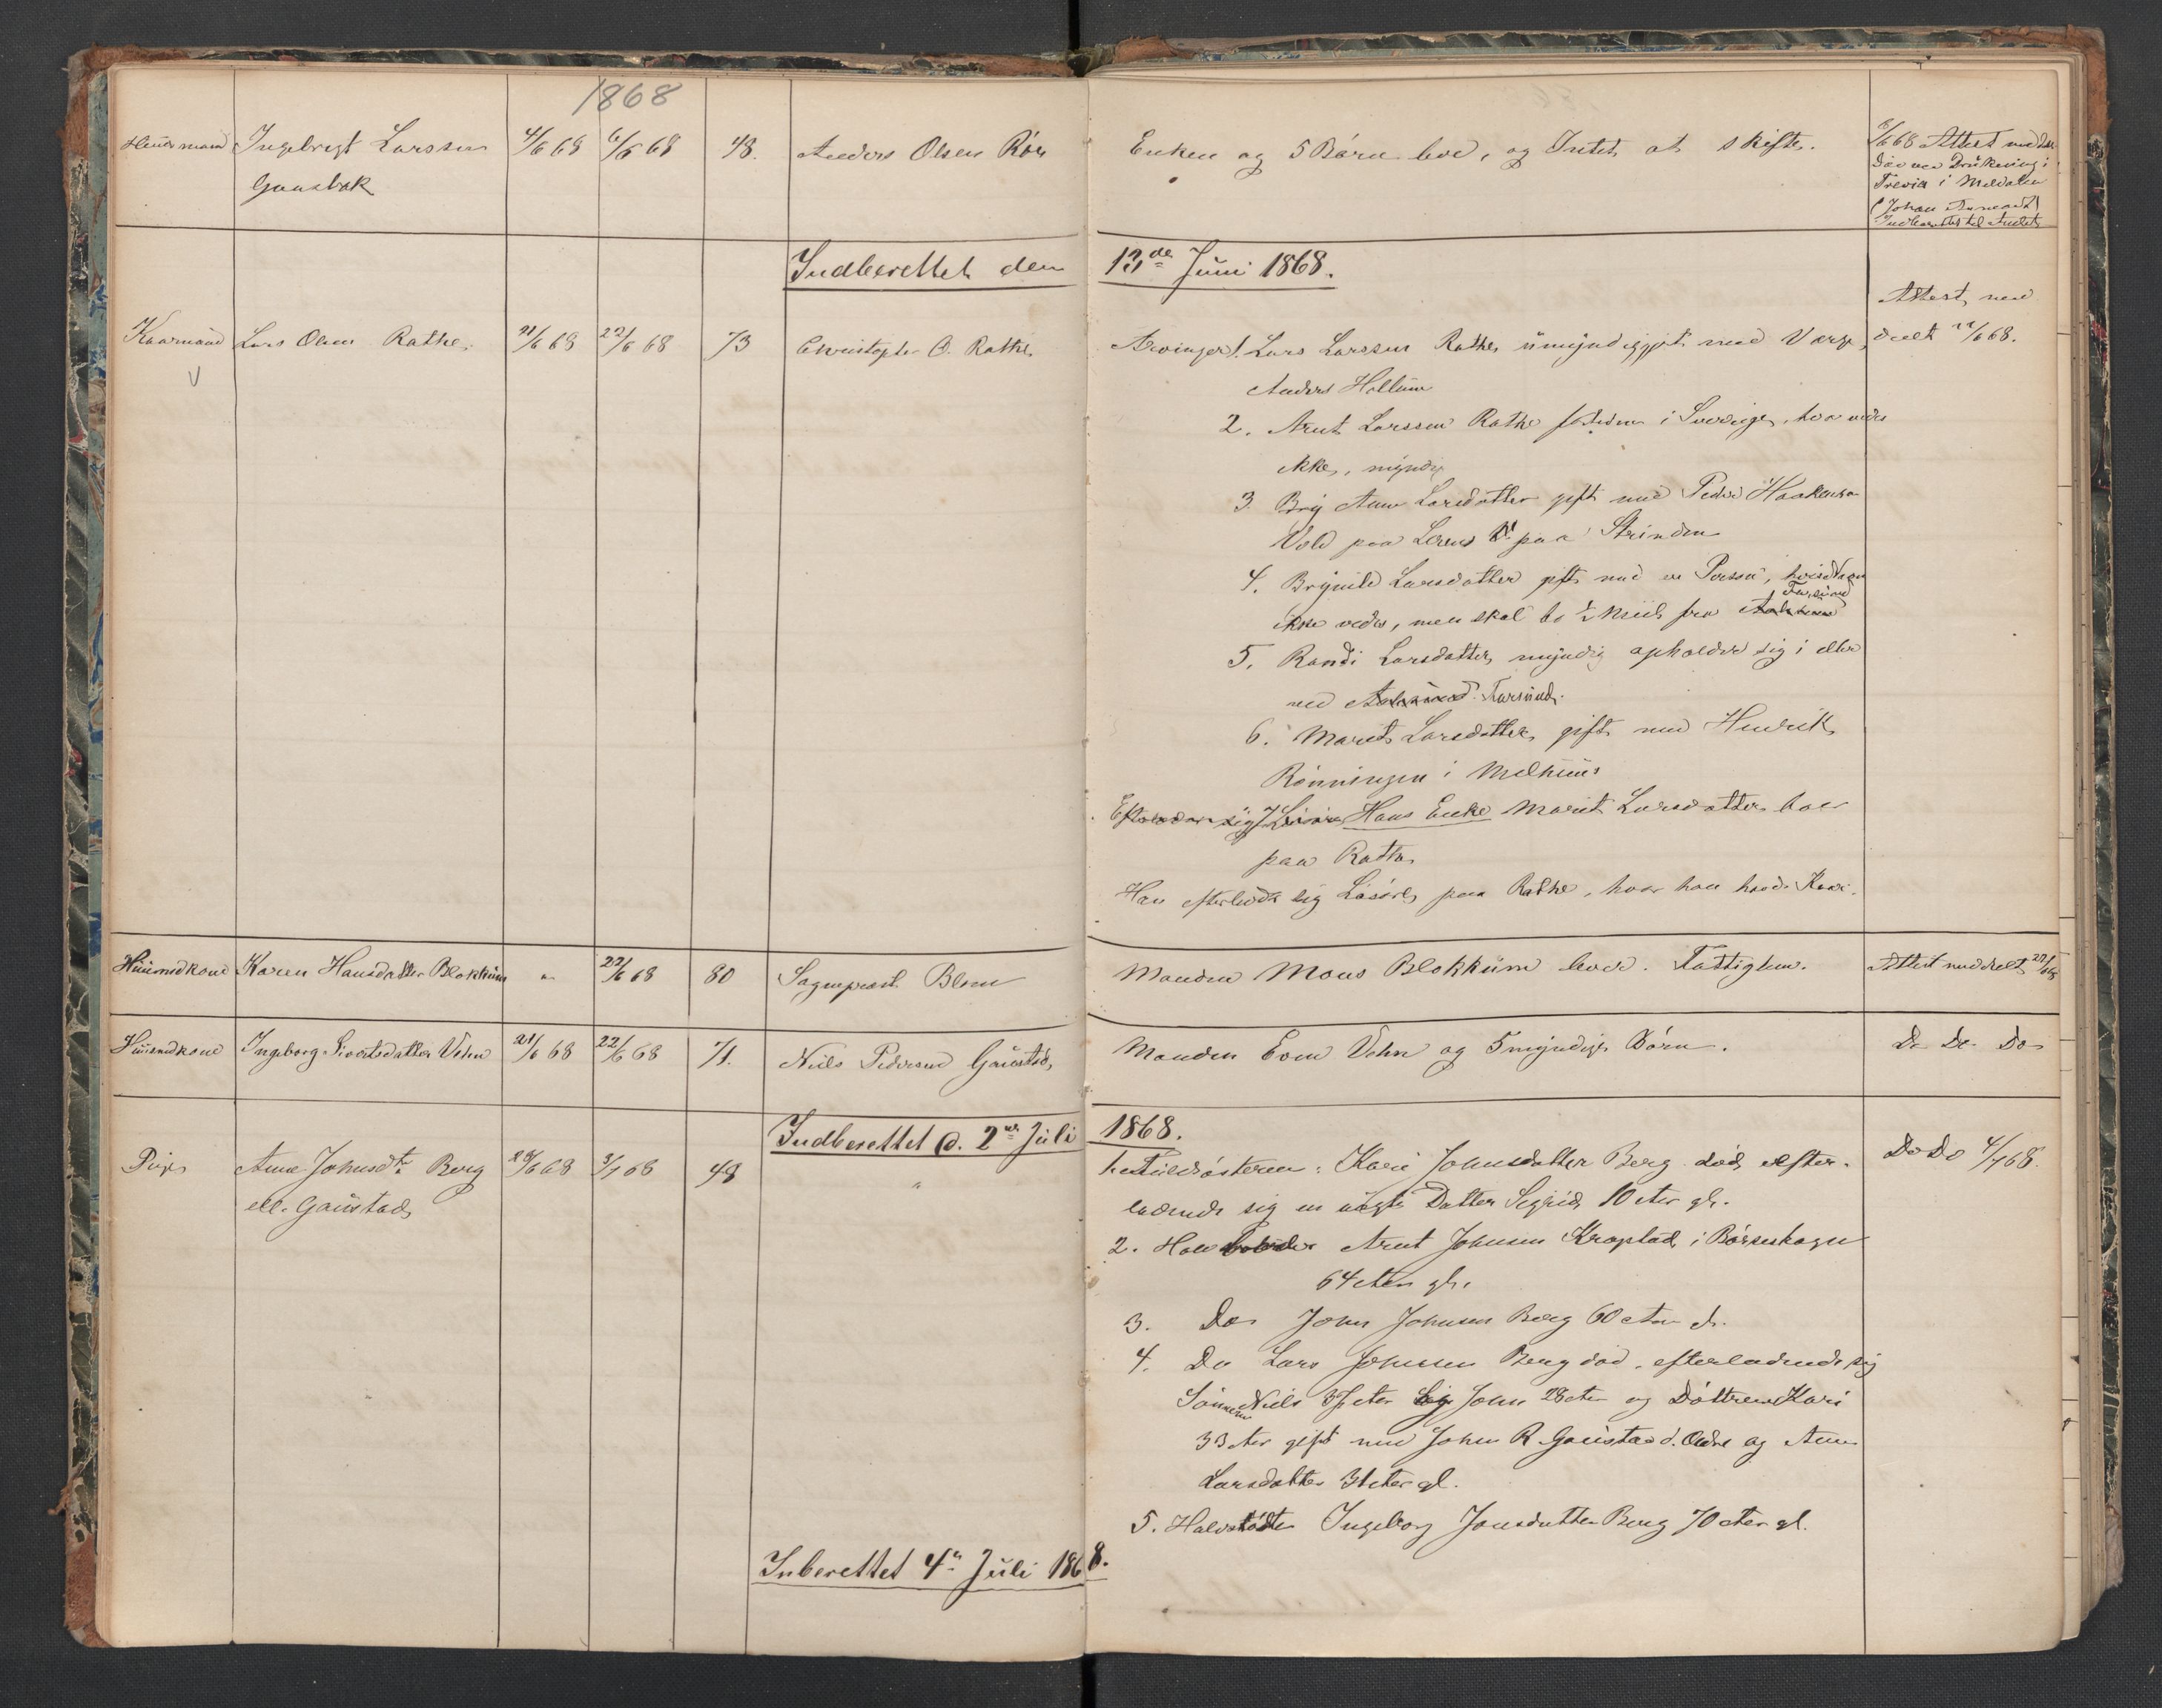 1868
Huusmand Ingebrigt Larssen 4/6 68 6/6 68 48. Anders Olsen Rör Enken og 5 Börn lever, og Intet at skifte. 6/6 68 Attest meddelt
Gaasbak Död ved Drukning i
i Meldalen
(Johan
Indberettet til Amtet
Indberettet den 13de Juni 1868.
Attest med
Kaarmand Lars Olsen Rathe. 21/6 68 22/6 68 73 Christopher O. Rathe Arvinger 1. Lars Larssen Rathe umyndiggjort med Værge, deelt 22/6 68.
Anders Hollum
2. Arnt Larssen Rathe i Sverige, hvor vides
ikke, myndig
3. Larsdatter gift med Peder Haakensen
Vold paa paa Strinden
4. Brynild Larsdatter gift med en Person, hvis Navn
Farsund
ikke vides, men skal bo ½ Miil fra
5. Randi Larsdatter, myndig opholder sig i eller
ved Farsund.
6. Marit Larsdatter gift med Henrik
Rönningen i Melhuus
Hans Enke Marit Larsdatter bor
paa Rathe
Han efterlod sig Lösöre paa Rathe, hvor han havde Kaar.
Huusmdkone Karen Hansdatter Blokkum " 22/6 68 80 Sogneprest Blom Manden Mons Blokkum lever. Fattiglem. Attest meddelt 22/6 68
Huusmdkone Ingeborg Sivertsdatter Vehn 21/6 68 22/6 68 71. Niels Pedersen Gaustad Manden Even Vehn og 5 myndige Börn. Do Do Do
Indberettet d. 2den Juli 1868.
Pige Anne Johnsdtr Berg 28/6 68 3/7 68 48 " 1. Kari Johnsdatter Berg död, efter- Do Do 4/7 68.
ell. Gaustad ladende sig en uægte Datter Sigrid 10 Aar gl.
2. Halvbroder Arnt Johnsen Kropstad i Börseskogn
64 Aar gl.
3. Do John Johnsen Berg 60 Aar gl.
4. Do Lars Johnsen Berg död, efterladende sig
Sönnerne Niels 37 Aar John 28 Aar og Döttrene Kari
33 Aar gift med John R. Gaustad d. Ældre og Anne
Larsdatter 31 Aar gl.
5. Halvsöster Ingeborg Jonsdatter Berg 70 Aar gl.
Inberettet 4de Juli 1868.